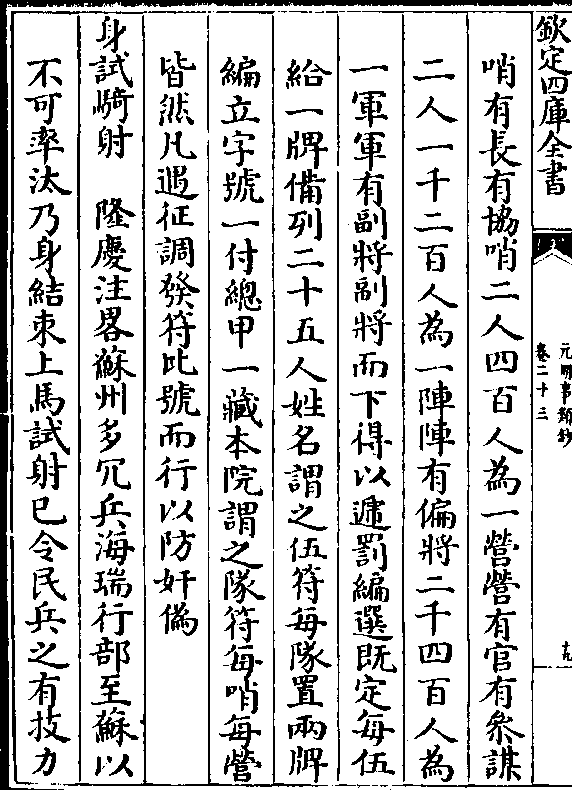 欽定四庫全書
元明事類鈔
卷二十三
哨有長有協哨二人四百人為一營營有官有叅謀
二人一千二百人為一陣陣有偏將二千四百人為
一軍軍有副將副將而下得以遞罰編選既定每伍
給一牌備列二十五人姓名謂之伍符每隊置兩牌
編立字號一付總甲一藏本院謂之隊符每哨每營
皆然凡遇征調發符比號而行以防奸偽
身試騎射　隆慶注畧蘇州多冗兵海瑞行部至蘇以
不可率汰乃身結束上馬試射已令民兵之有技力